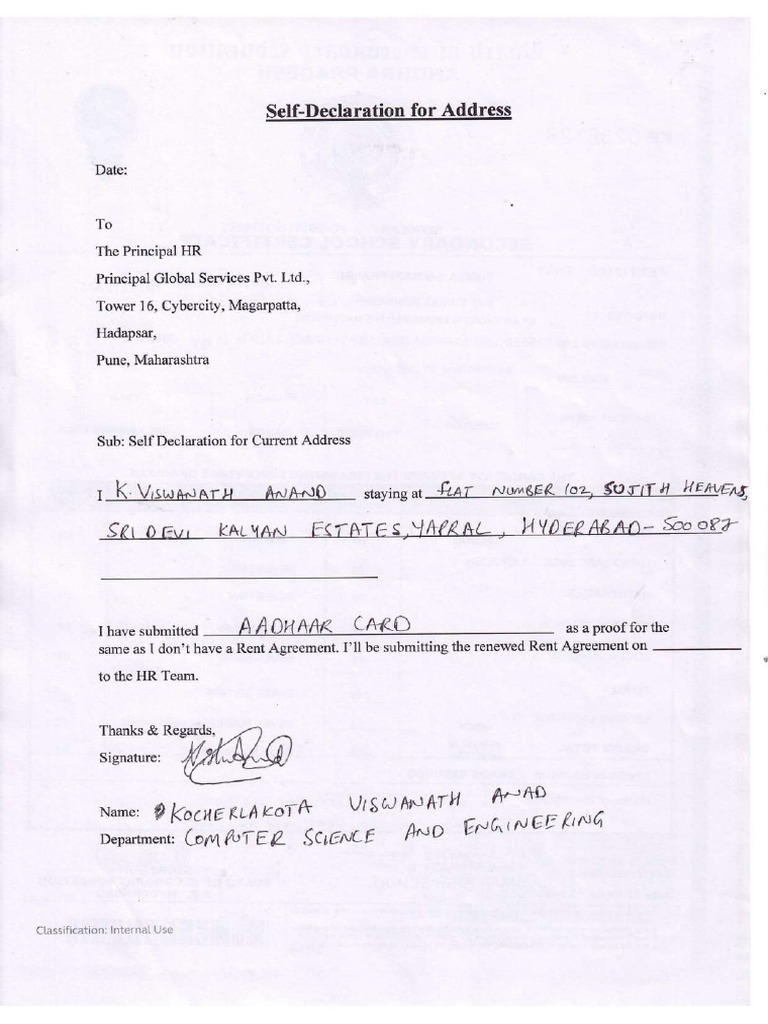 Self-Declaration for Address
Date:
To
The Principal HR
Principal Global Services Pvt. Ltd.,
Tower 16, Cybercity, Magarpatta,
Hadapsar,
Pune, Maharashtra
Sub: Self Declaration for Current Address
I K. VISWANATH ANAND staying at FLAT NUMBER 102, SUJITH HEAVENS,
SRI DEVI KALYAN ESTATES, YAPRAL, HYDERABAD- 500087
I have submitted AADHAAR CARD as a proof for the
same as I don't have a Rent Agreement. I'll be submitting the renewed Rent Agreement on
to the HR Team.
Thanks & Regards,
Signature:
Name: KOCHERLAKOTA VISWANATH ANAD
Department: COMPUTER SCIENCE AND ENGINEERING
Classification: Internal Use